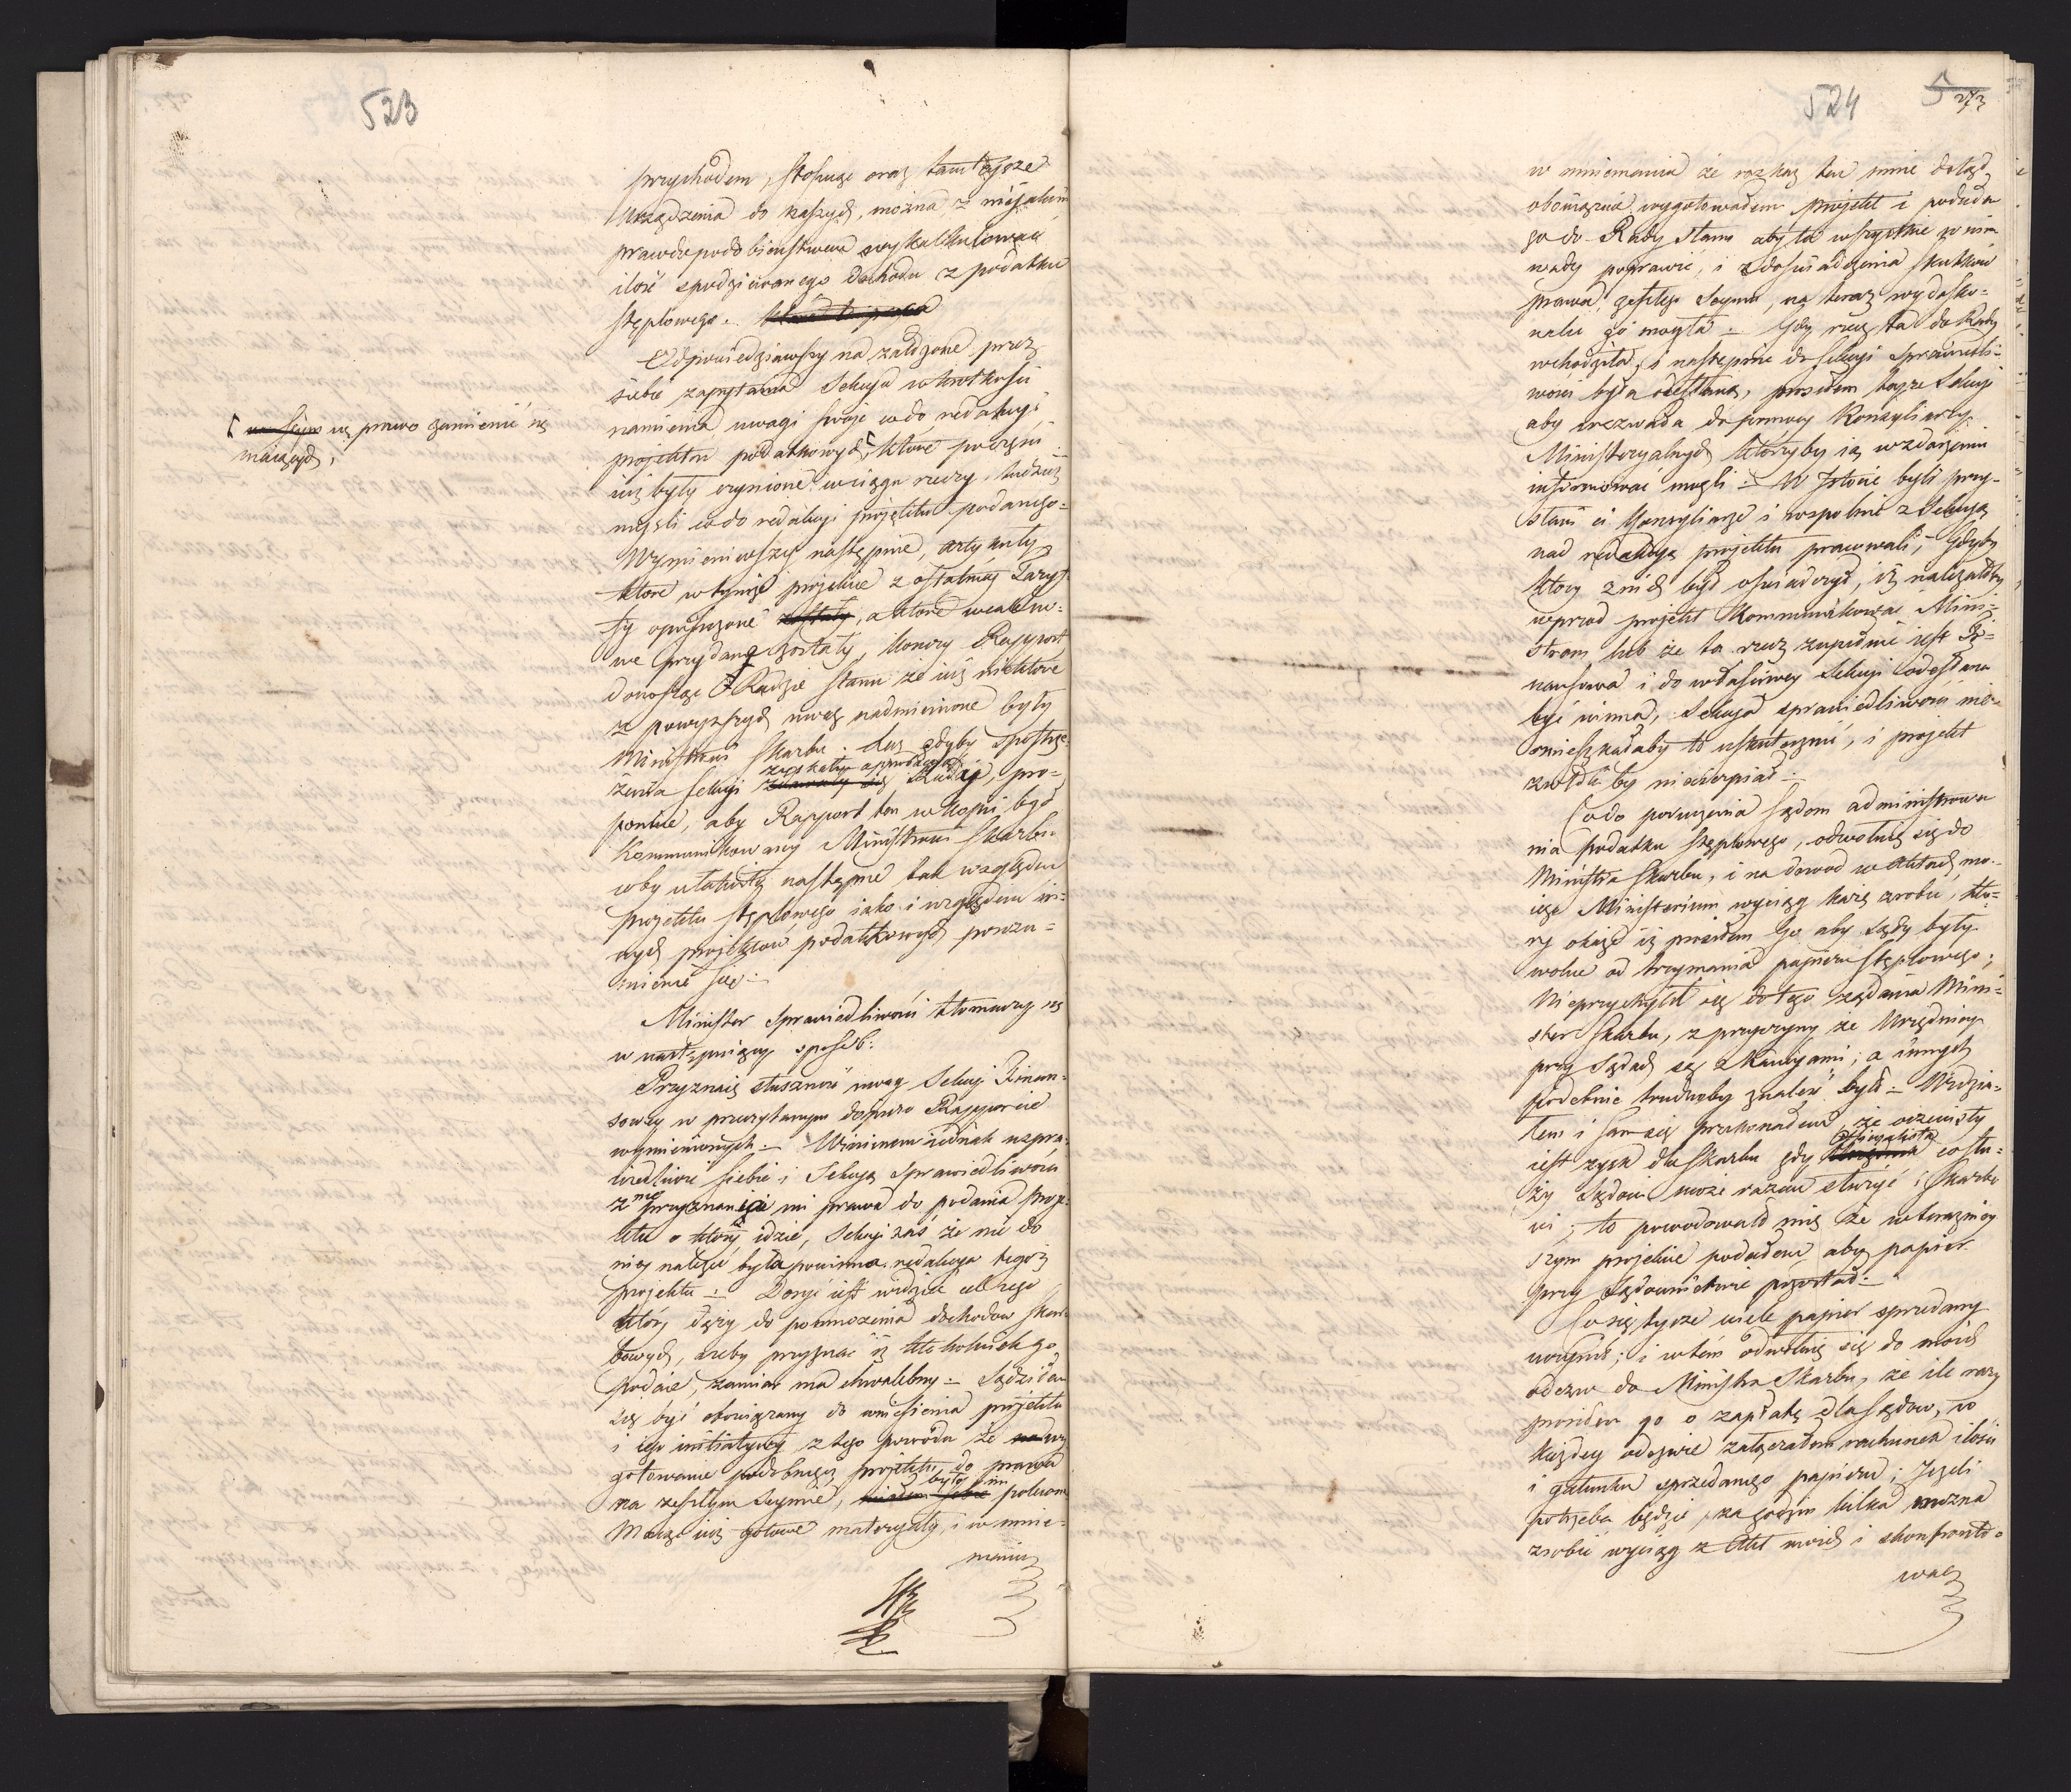 523
przychodem, stosuiąc oraz tamteysze
Urządzenia do naszych, można z nieiakim
prawdopodobieństwem wykalkulować
ilość spodziewanego Dochodu z podatku
stęplowego.
Odpowiedziawszy na założone przez
siebie zapytania Sekcya w krotkości
namienia uwagi swoje co do redakcyi
projektów podatkowych które poczęści
iuż były czynione w ciągu rzeczy, tudzież
myśli co do redakcyi projektu podanego =
Wymieniwszy następnie, artykuły
które w tymże projekcie z ostatniey Taryf=
fy opuszczone zostały, a które wcale no=
we przydane zostały, kończy Rapport
donosząc Radzie Stanu że iuż niektóre
z powyższych uwag nadmienione były
Ministrowi Skarbu. Lecz gdyby spostrze=
żenia Sekcyi zyskały approbacyą Rady, pro=
ponuie, aby Rapport ten w kopii był
kommunikowany Ministrowi Skarbu
coby ułatwiło następnie tak względem
projektu stęplowego iako i względem in=
nych projektów podatkowych porozu=
mienie się =
Minister Sprawiedliwości tłomaczy się
w następuiący sposób:
Przyznaię słuszność uwag Sekcyi Finan=
sowey w przeczytanym dopiero Rapporcie
wymienionych = Winienem iednak uspra=
wiedliwić siebie i Sekcyą Sprawiedliwości
z nieprzyznania mi prawa do podania proje=
ktu o który idzie, Sekcyi zaś że nie do
niey należeć była powinna redakcya tegoż
projektu = Dosyć iest widzieć cel tego
który dąży do pomnożenia dochodów skar=
bowych, żeby przyznać iż ktokolwiek go
podaie, zamiar ma chwalebny = Sądziłem
się być obowiązany do wniesienia projektu
i iego initiatywy z tego powodu że wy
gotowanie podobnego projektu do prawa
na zeszłym Seymie, było mi polecone
Maiąc iuż gotowe materyały, i w mnie=
maniu
[ na Seym się prawo zamienić się
maiących,
524
5 273
w mniemaniu że rozkaz ten mnie dotąd
obowiązuie wygotowałem projekt i podałem
go do Rady Stanu aby ta wszystkie w nim
wady poprawić, i z doświadczenia skutków
prawa zeszłego Seymu, na teraz wydosko=
nalić go mogła = Gdy rzecz ta do Rady
wchodziła, i następnie do Sekcyi Sprawiedli=
wości była odesłana, prosiłem tęże Sekcyi
aby wezwała do pomocy Konsyliarzy
Ministeryalnych którzyby ią w zdarzeniu
informować mogli = W istocie byli przy=
słani ci Konsyliarze i wspólnie z Sekcyą
nad redakcyą projektu pracowali, Gdyby
który z nich był oświadczył, iż należałoby
wprzód projekt kommunikować Mini=
strom lub że ta rzecz zupełnie iest Fi=
nansowa i do właściwey Sekcyi odesłana
być winna, Sekcya sprawiedliwości nie=
omieszkałaby to uskutecznić, i projekt
zwłoki by nie cierpiał =
Co do poruczenia Sądom administrowa
nia podatku stęplowego, odwołuię się do
Ministra Skarbu, i na dowód w Aktach mo=
iego Ministerium wyciąg każę zrobić, któ=
ry okaże iż prosiłem go aby Sądy były
wolne od trzymania papieru stęplowego;
Nieprzychylił się do tego żądania Mini=
ster Skarbu, z przyczyny że Urzędnicy
przy Sądach są z kaucyami; a innych
podobnie trudnoby znaleźć było = Widzia=
łem i sam się przekonałem że oczewisty
iest zysk dla Skarbu gdy Officyalista co słu=
ży Sądowi może razem służyć i Skarbo
wi; to powodowało mię że w teraźniey
szym projekcie podałem, aby papier
przy Sądownictwie pozostał =
Co się tycze wiele papier sprzedany
uczynił; i w tém odwołuię się do moich
odezw do Ministra Skarbu, że ile razy
prosiłem go o zapłatę dla Sądów, w
każdey odezwie załączałem rachunek ilości
i gatunku sprzedanego papieru; Jeżeli
potrzeba będzie, za godzin kilka można
zrobić wyciąg z Akt moich i skonfronto=
wać